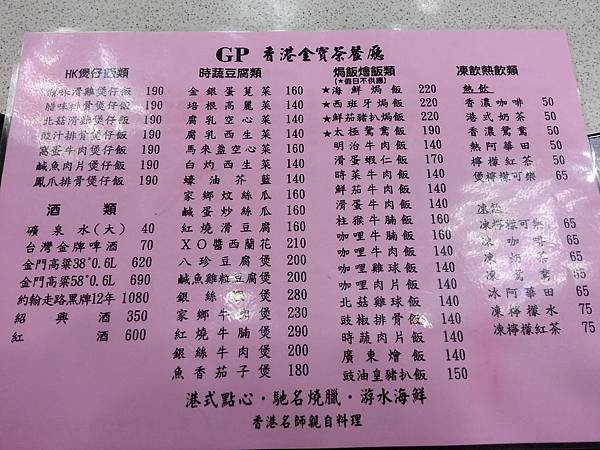 GP 香港金寶茶餐廳
HK煲仔飯類
腊味滑雞煲仔飯 190
腊味排骨煲仔飯 190
北菇滑雞煲仔飯 190
豉汁排骨煲仔飯 190
窩蛋牛肉煲仔飯 190
鹹魚肉片煲仔飯 190
鳳爪排骨煲仔飯 190
酒類
礦泉水(大) 40
台灣金牌啤酒 70
金門高粱38°0.6L 620
金門高粱58°0.6L 690
約翰走路黑牌12年 1080
紹興酒 350
紅酒 600
時蔬豆腐類
金銀蛋莧菜 160
培根高麗菜 140
腐乳空心菜 140
腐乳西生菜 140
馬來盞空心菜 160
白灼西生菜 140
蠔油芥藍 140
家鄉炆絲瓜 160
鹹蛋炒絲瓜 160
紅燒滑豆腐 160
XO醬西蘭花 210
八珍豆腐煲 200
鹹魚雞粒豆腐煲 200
銀絲煲 280
家鄉牛煲 230
紅燒牛腩煲 290
銀絲牛肉煲 200
魚香茄子煲 180
焗飯燴飯類
(★假日不供應)
★海鮮焗飯 220
★西班牙焗飯 220
★鮮茄豬扒焗飯 220
★太極鴛鴦飯 190
明治牛肉飯 140
滑蛋蝦仁飯 170
時菜牛肉飯 140
鮮茄牛肉飯 140
滑蛋牛肉飯 140
柱猴牛腩飯 140
咖哩牛腩飯 140
咖哩雞球飯 140
咖哩肉片飯 140
北菇雞球飯 140
豉椒排骨飯 140
時蔬肉片飯 140
廣東燴飯 140
豉油皇豬扒飯 150
凍飲熱飲類
熱飲
香濃咖啡 50
港式奶茶 50
香濃鴛鴦 50
熱阿華田 50
檸檬紅茶 50
煲檸檬可樂 65
凍飲
凍檸檬可樂 65
凍咖啡 65
凍奶茶 65
凍鴛鴦 65
冰阿華田 65
凍檸檬水 75
凍檸檬紅茶 65
港式點心·馳名燒臘·游水海鮮
香港名師親自料理